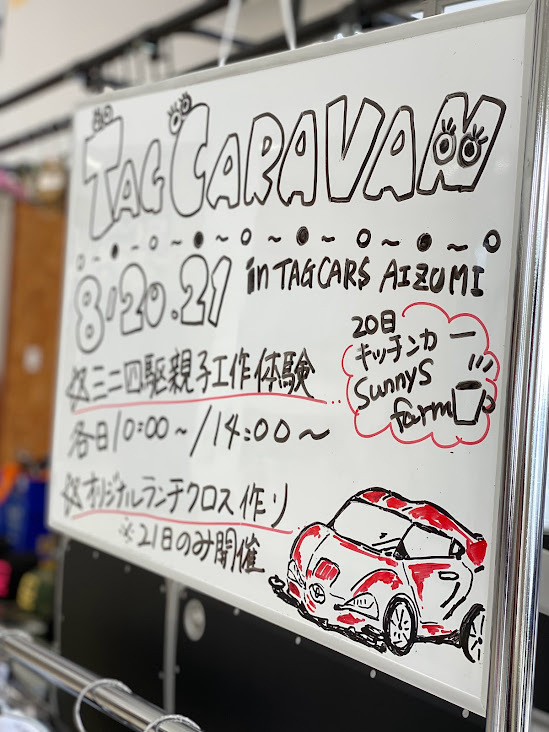 TAG CARAVAN
8/20.21 in TAGCARS AIZUMI
20日
キッチンカー
Sunnys
farm
☆ミニ四駆親子工作体験
各日10:00~/14:00~
☆オリジナルランチクロス作り
※21日のみ開催